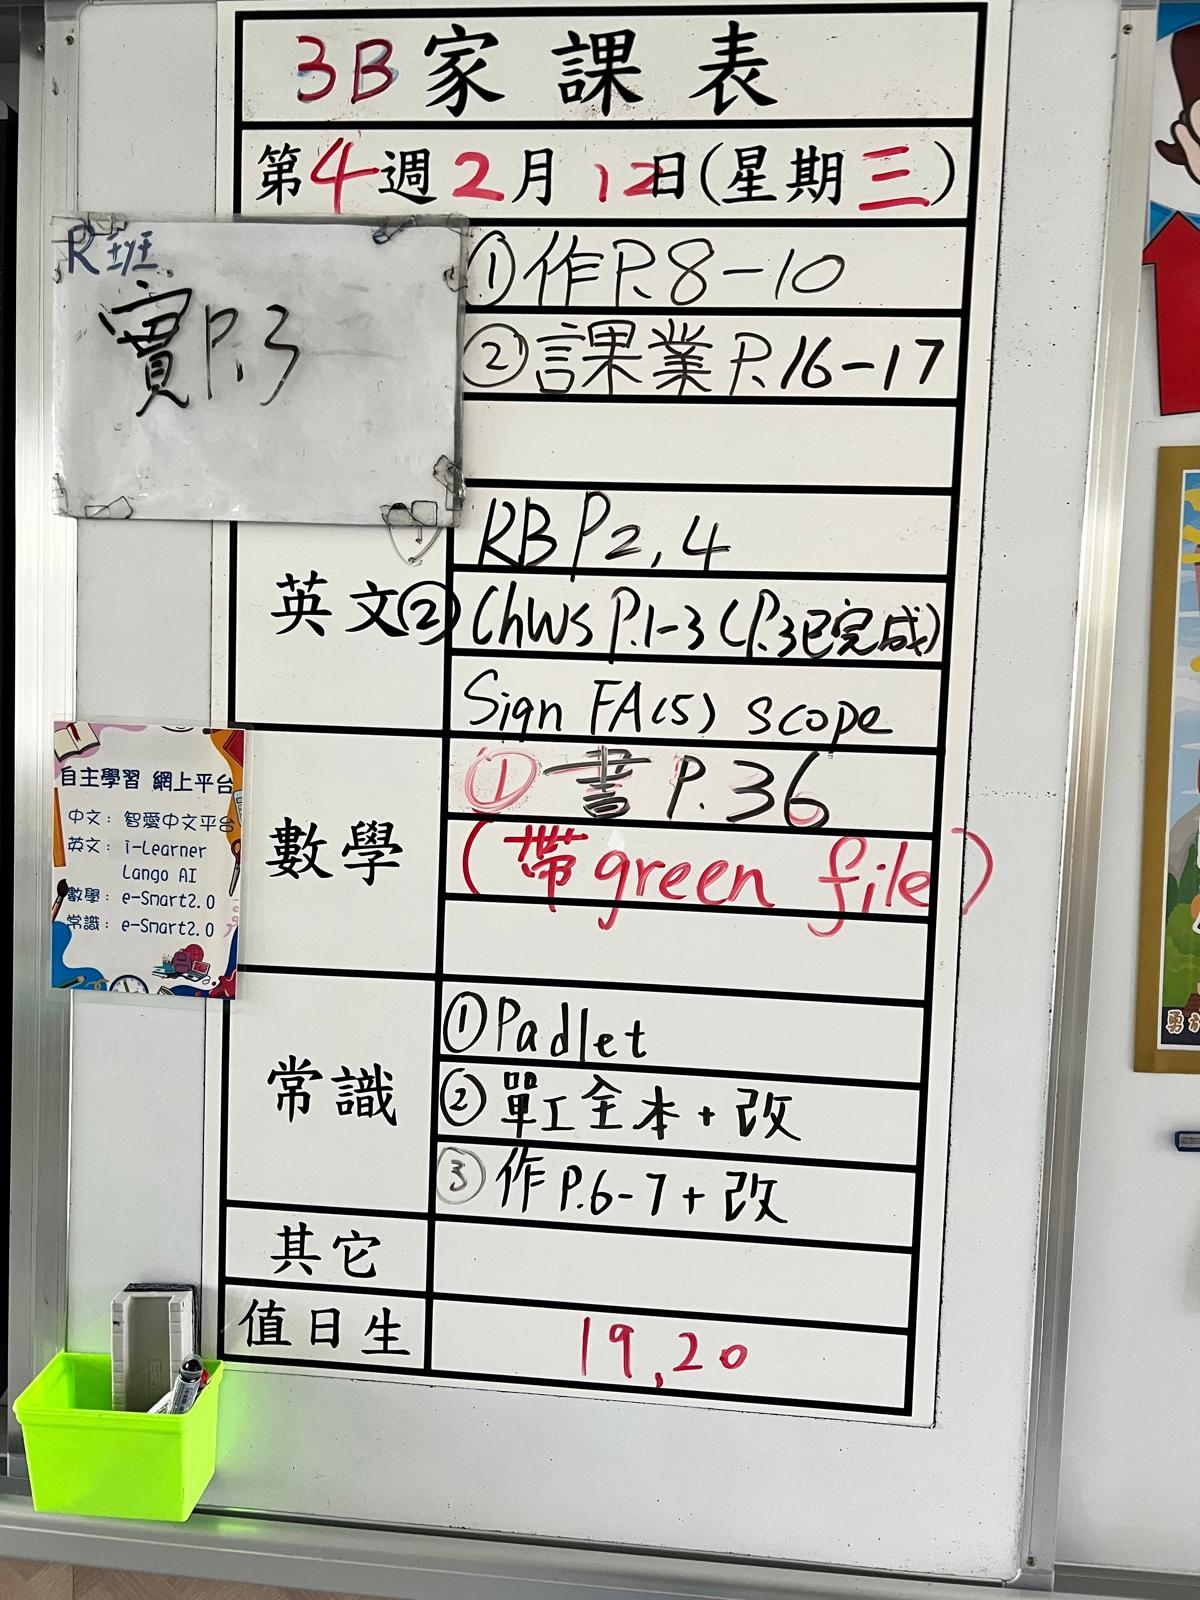 3B 家課表
第4週2月12日(星期三)
R班
實P.3
①作P.8-10
②課業P.16-17
英文②
RB P2,4
ChWS P.1-3 (P.3已完成)
Sign FA(5) scope
數學
①書P.36
(帶green file)
常識
①Padlet
②單工全本+改
③作P.6-7+改
其它
值日生
19,20
自主學習 網上平台
中文: 智愛中文平台
英文: i-Learner
Lango AI
數學: e-Smart2.0
常識: e-Smart2.0